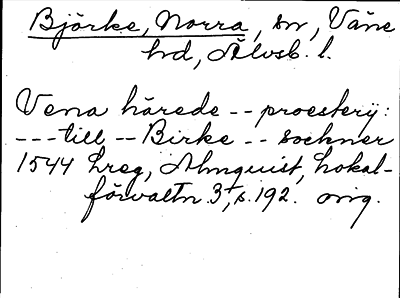 Björke, Norra, sn, Väne
hd, Älvsb. l.
Vena härede -- proesterij:
--- till -- Birke -- sochner
1544 Lreg, Almquist, Lokal-
förvaltn. 3, s. 192. orig.